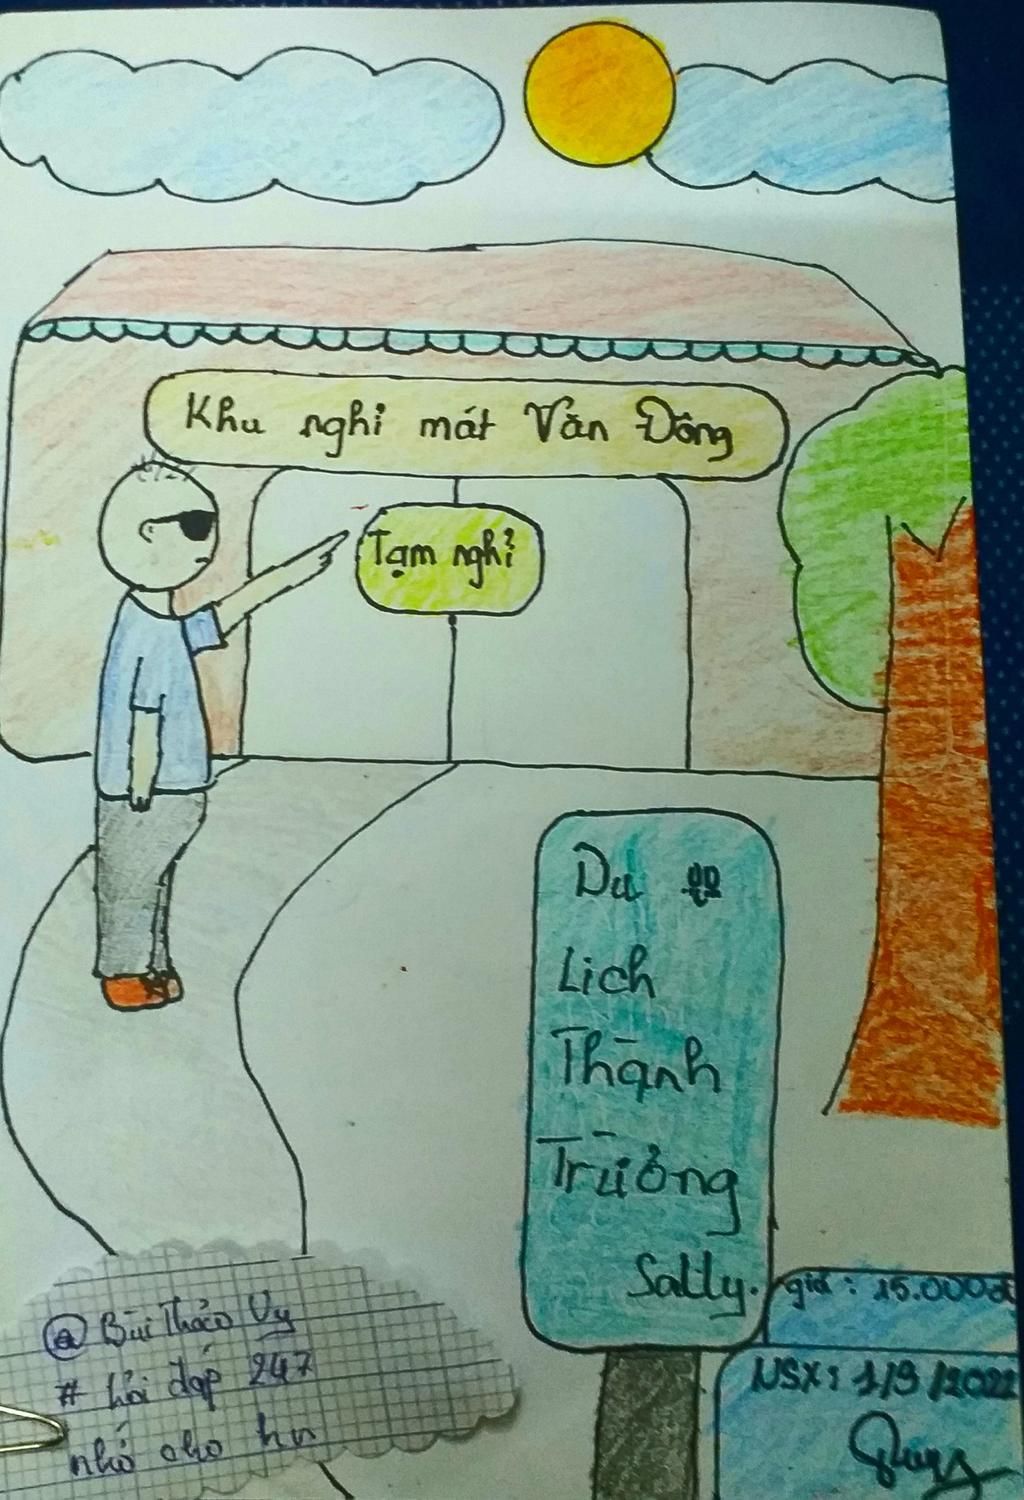 Khu nghỉ mát Văn Đông
Tạm nghỉ
Du
Lich
Thành
Trưởng
Sally.
giá : 15.000đ
NSX: 1/9/2022
@ Bùi Thảo Vy
# hỏi đáp 247
nhớ cho hn